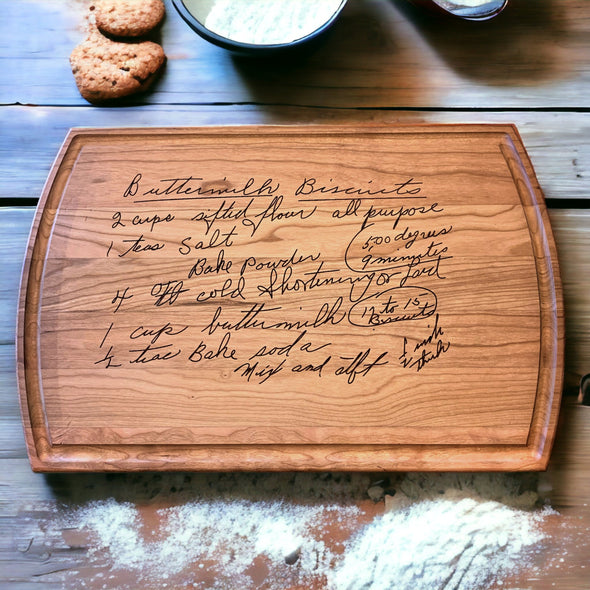 Buttermilk Biscuits
2 cups sifted flour all purpose
1 teas Salt
Bake Powder
500 degrees
9 minutes
4 cold Shortening or Lard
1 cup buttermilk
12 to 15
Biscuits
1/2 teas Bake soda
Mix and
1/2 inch
thick